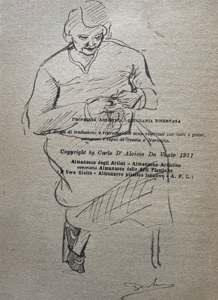 PROPRIETÀ ARTISTICA LETTERARIA RISERVATA
di traduzione e riproduzione sono riservati per tutti i paesi,
compresi i regni di Svezia e Norvegia.
Copyright by Carlo D'Aloisio Da Vasto 1931
Almanacco degli Artisti - Almanacco Artistico
Almanacco delle Arti Plastiche
Il Vero Giotto - Almanacco